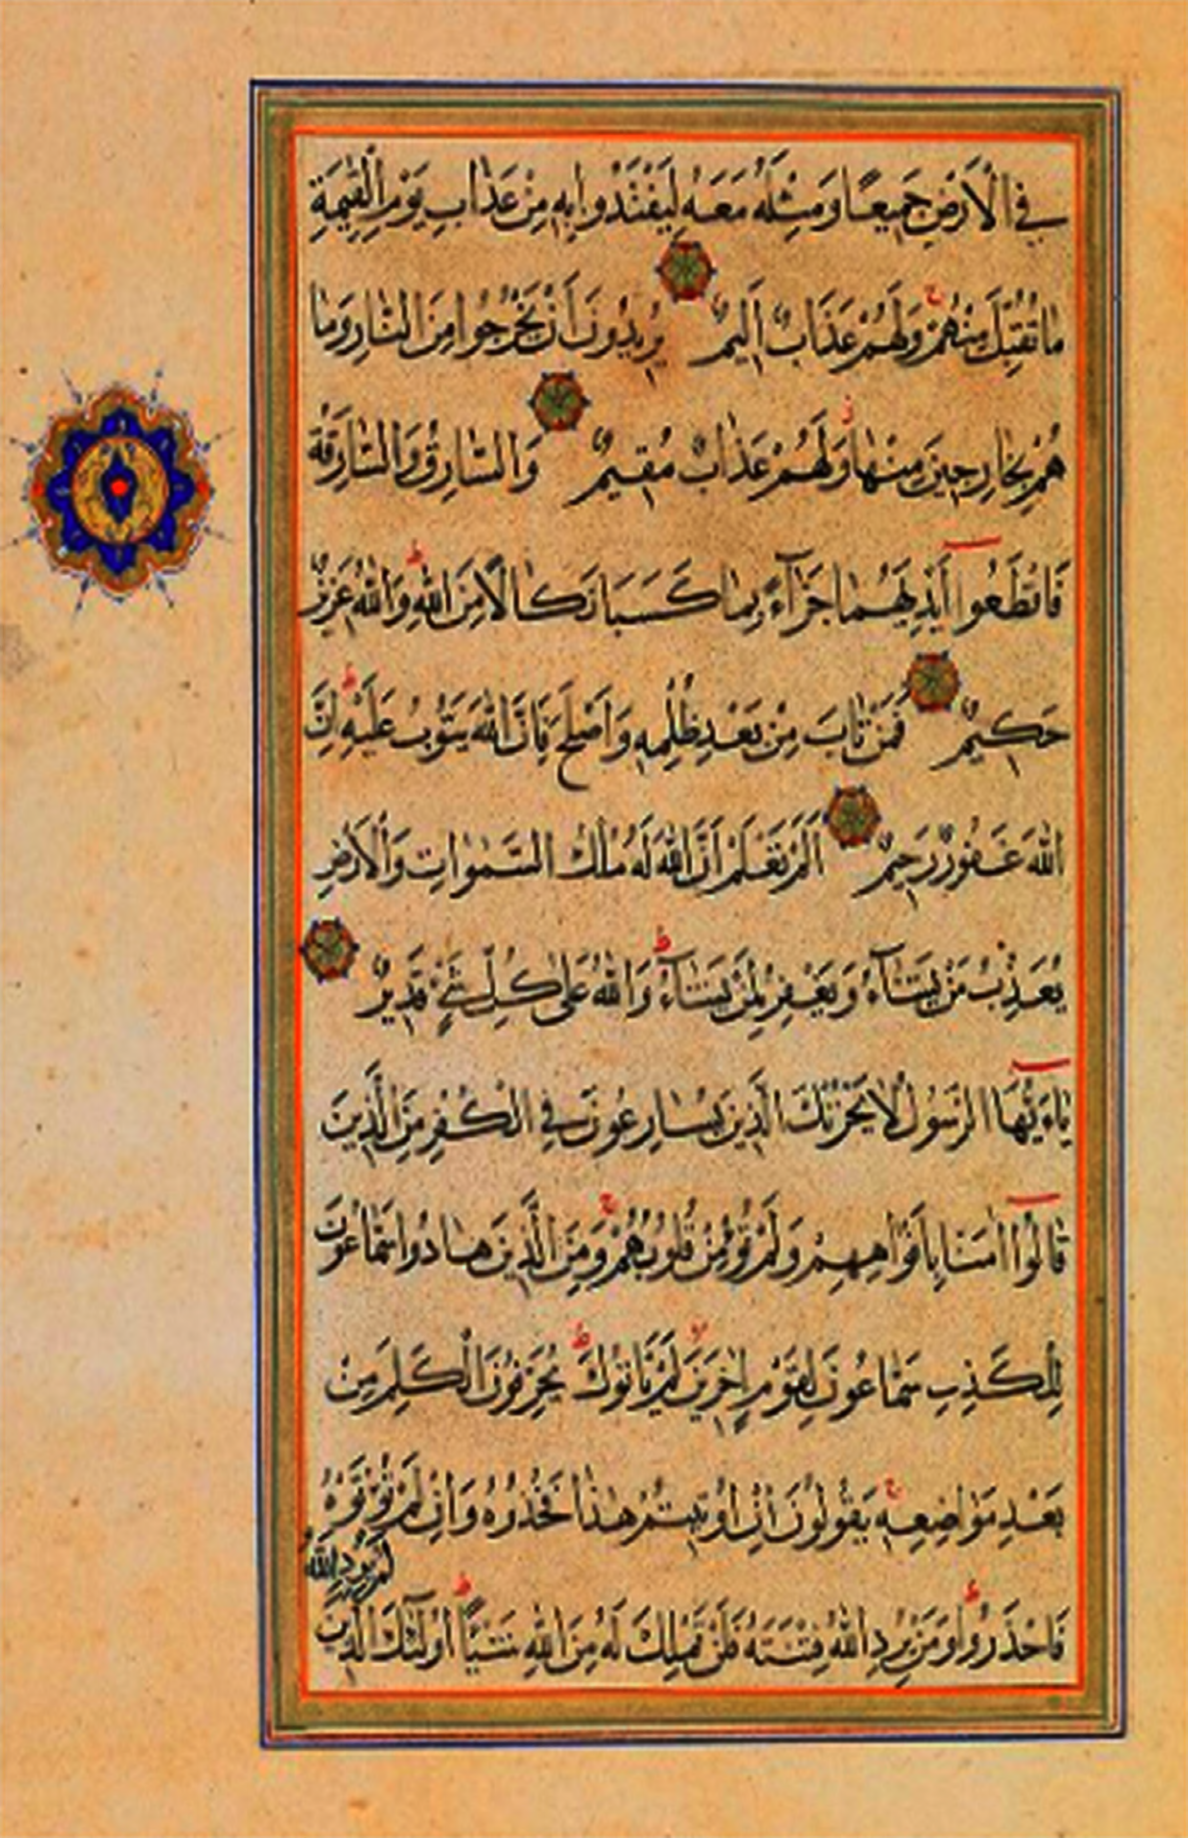 فِي الْأَرْضِ جَمِيعًا وَمِثْلَهُ مَعَهُ لِيَفْتَدُوا بِهِ مِنْ عَذَابِ يَوْمِ الْقِيٰمَةِ
مَا تُقُبِّلَ مِنْهُمْ ۚ وَلَهُمْ عَذَابٌ أَلِيمٌ يُرِيدُونَ أَنْ يَخْرُجُوا مِنَ النَّارِ وَمَا
هُمْ بِخَارِجِينَ مِنْهَا وَلَهُمْ عَذَابٌ مُقِيمٌ وَالسَّارِقُ وَالسَّارِقَةُ
فَاقْطَعُوا أَيْدِيَهُمَا جَزَاءً بِمَا كَسَبَا نَكَالًا مِنَ اللهِ ۗ وَاللهُ عَزِيزٌ
حَكِيمٌ فَمَنْ تَابَ مِنْ بَعْدِ ظُلْمِهِ وَأَصْلَحَ فَإِنَّ اللهَ يَتُوبُ عَلَيْهِ ۗ إِنَّ
اللهَ غَفُورٌ رَحِيمٌ أَلَمْ تَعْلَمْ أَنَّ اللهَ لَهُ مُلْكُ السَّمٰوَاتِ وَالْأَرْضِ
يُعَذِّبُ مَنْ يَشَاءُ وَيَغْفِرُ لِمَنْ يَشَاءُ ۗ وَاللهُ عَلَى كُلِّ شَيْءٍ قَدِيرٌ
يَاءَيُّهَا الرَّسُولُ لَا يَحْزُنْكَ الَّذِينَ يُسَارِعُونَ فِي الْكُفْرِ مِنَ الَّذِينَ
قَالُوا اٰمَنَّا بِأَفْوَاهِهِمْ وَلَمْ تُؤْمِنْ قُلُوبُهُمْ ۚ وَمِنَ الَّذِينَ هَادُوا سَمَّاعُونَ
لِلْكَذِبِ سَمَّاعُونَ لِقَوْمٍ اٰخَرِينَ لَمْ يَأْتُوكَ ۗ يُحَرِّفُونَ الْكَلِمَ مِنْ
بَعْدِ مَوَاضِعِهِ ۚ يَقُولُونَ إِنْ أُوتِيتُمْ هٰذَا فَخُذُوهُ وَإِنْ لَمْ تُؤْتَوْهُ
فَاحْذَرُوا وَمَنْ يُرِدِ اللهُ فِتْنَتَهُ فَلَنْ تَمْلِكَ لَهُ مِنَ اللهِ شَيْئًا ۗ أُولٰئِكَ الَّذِينَ
لَمْ يُرِدِ اللهُ